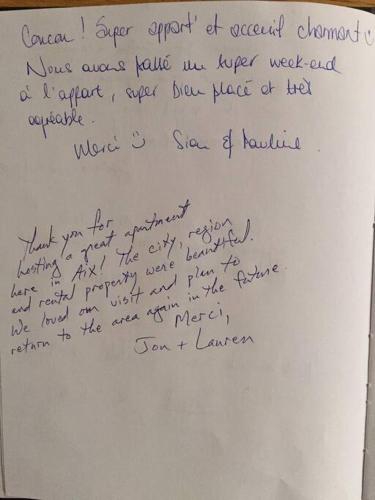 Coucou ! Super appart' et acceuil charmant :)
Nous avons passé un super week-end
à l'appart, super bien placé et très
agréable.
Merci :) Sian & Pauline.
Thank you for
hosting a great apartment
here in Aix! The city, region
and rental property were beautiful.
We loved our visit and plan to
return to the area again in the future.
Merci,
Jon + Lauren